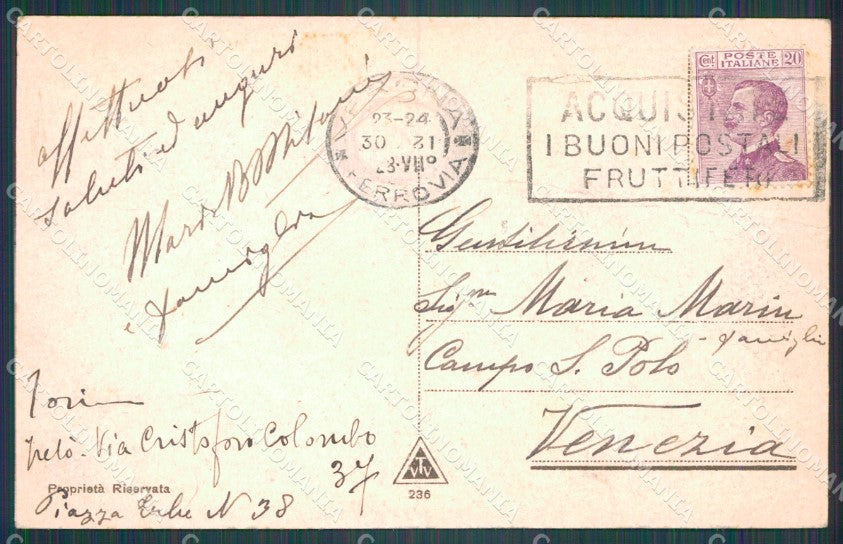 affettuosi
saluti ed auguri
Mario B
e famiglia
VERONA
23-24
30 21
FERROVIA
ACQUISTATE
I BUONI POSTALI
FRUTTIFERI
POSTE
ITALIANE
Cent. 20
Gentilissima
Sigra Maria Marin
e famiglia
Campo S. Polo
Venezia
Via Cristoforo Colombo
37
Piazza Erbe N 38
Proprietà Riservata
VTV
236
CARTOLINOMANIA